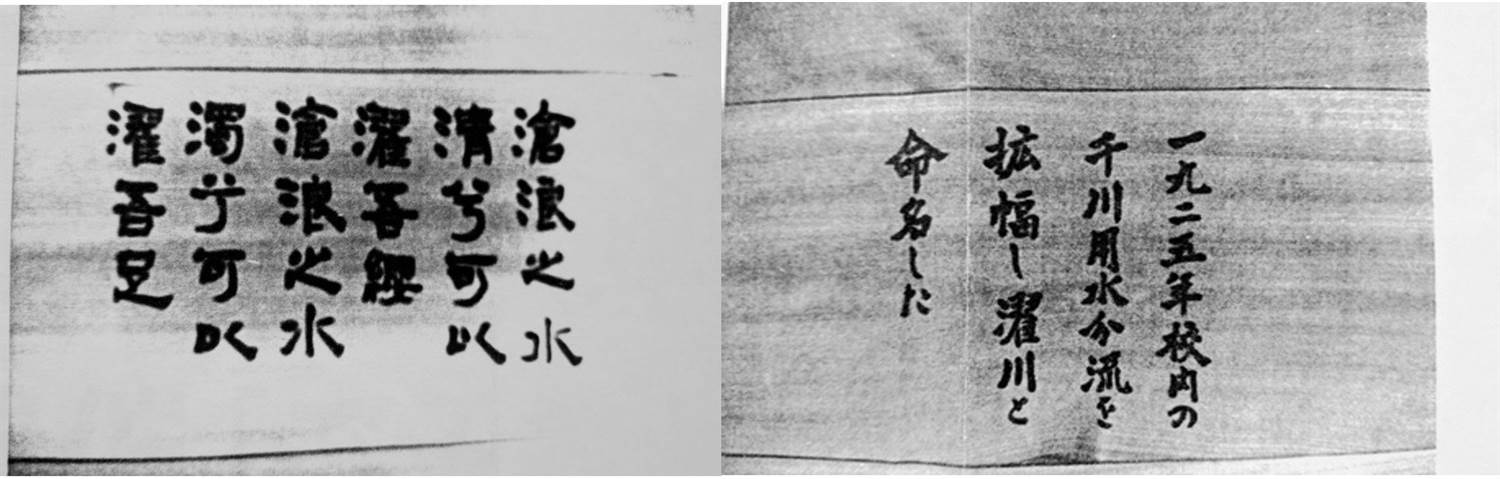 滄浪之水
清兮可以
濯吾纓
滄浪之水
濁兮可以
濯吾足
一九二五年校内の
千川用水分流を
拡幅し濯川と
命名した